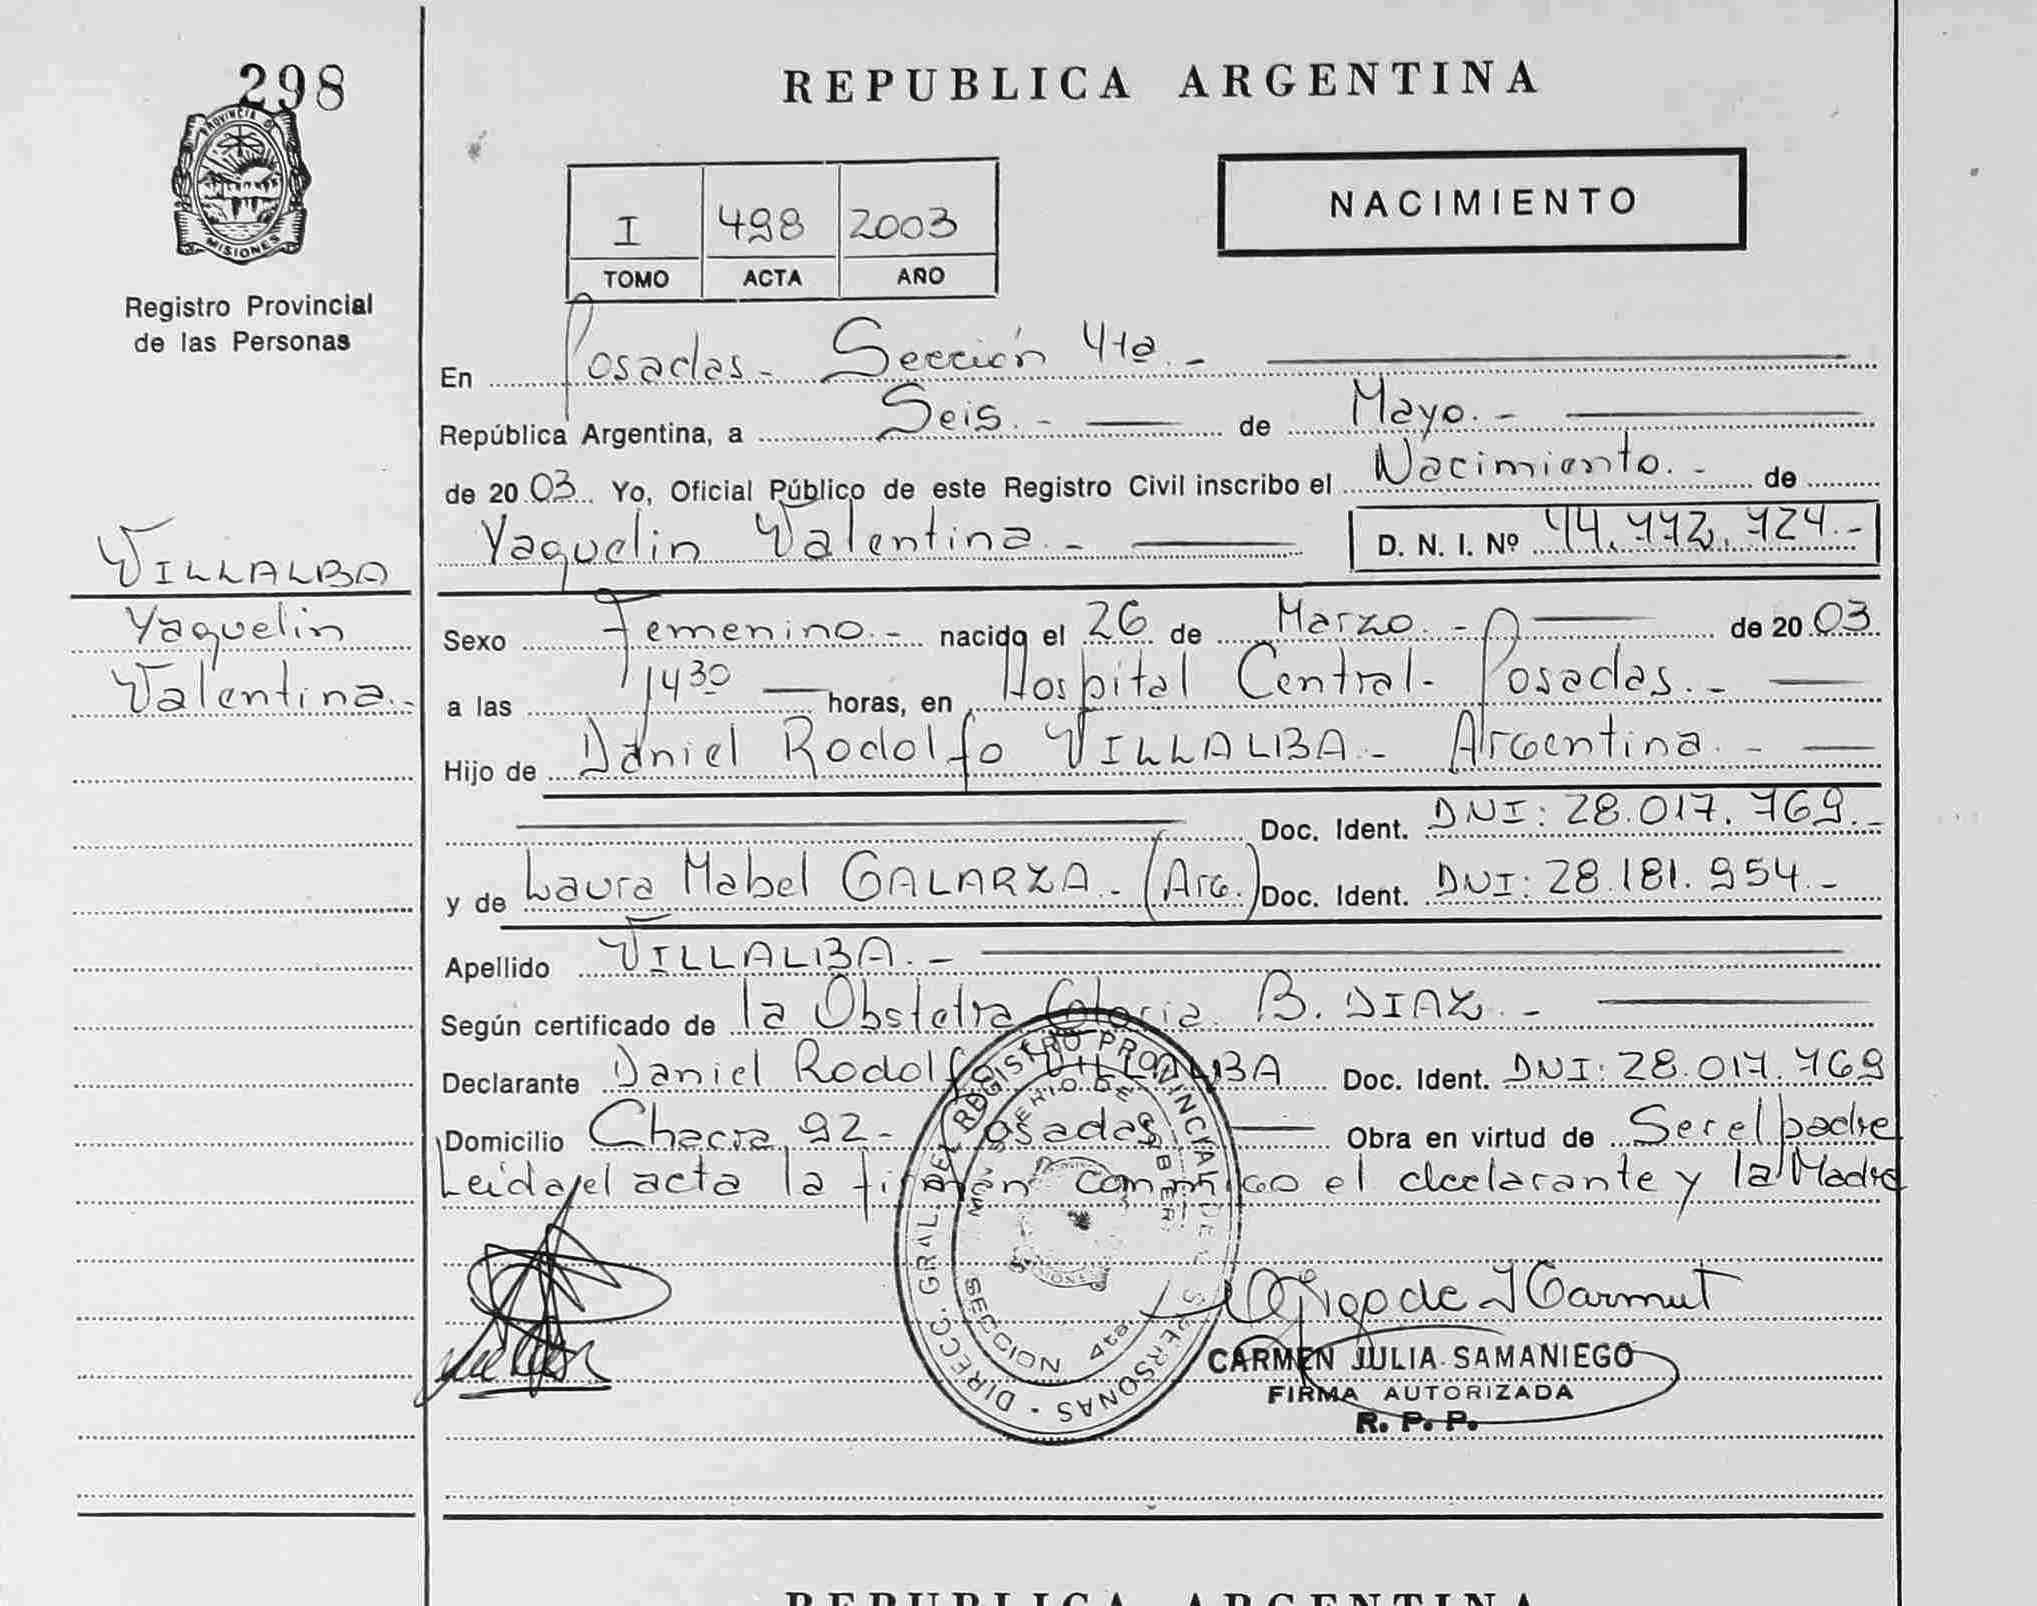 298
PROVINCIA DE
MISIONES
Registro Provincial
de las Personas
VILLALBA
Yaquelin
Valentina.-
REPUBLICA ARGENTINA
NACIMIENTO
I 498 2003
TOMO ACTA AÑO
En Posadas.- Sección 4ta.-
República Argentina, a Seis.- de Mayo.-
de 2003. Yo, Oficial Público de este Registro Civil inscribo el Nacimiento.- de
Yaquelin Valentina.- D. N. I. Nº 44.772.724.-
Sexo Femenino.- nacido el 26 de Marzo.- de 2003
a las 14 30 horas, en Hospital Central- Posadas.-
Hijo de Daniel Rodolfo VILLALBA.- Argentina.-
Doc. Ident. DNI: 28.017.769.-
y de Laura Mabel GALARZA.- (Arg.) Doc. Ident. DNI: 28.181.954.-
Apellido VILLALBA.-
Según certificado de la Obstetra Gloria B. DIAZ.-
Declarante Daniel Rodolfo VILLALBA Doc. Ident. DNI: 28.017.769
Domicilio Chacra 92- Posadas Obra en virtud de Ser el padre
Leida el acta la firman conmigo el declarante y la Madre
DIRECC. GRAL. DEL REGISTRO PROVINCIAL DE LAS PERSONAS
SECCION 4ta.
CARMEN JULIA SAMANIEGO
FIRMA AUTORIZADA
R. P. P.
REPUBLICA ARGENTINA